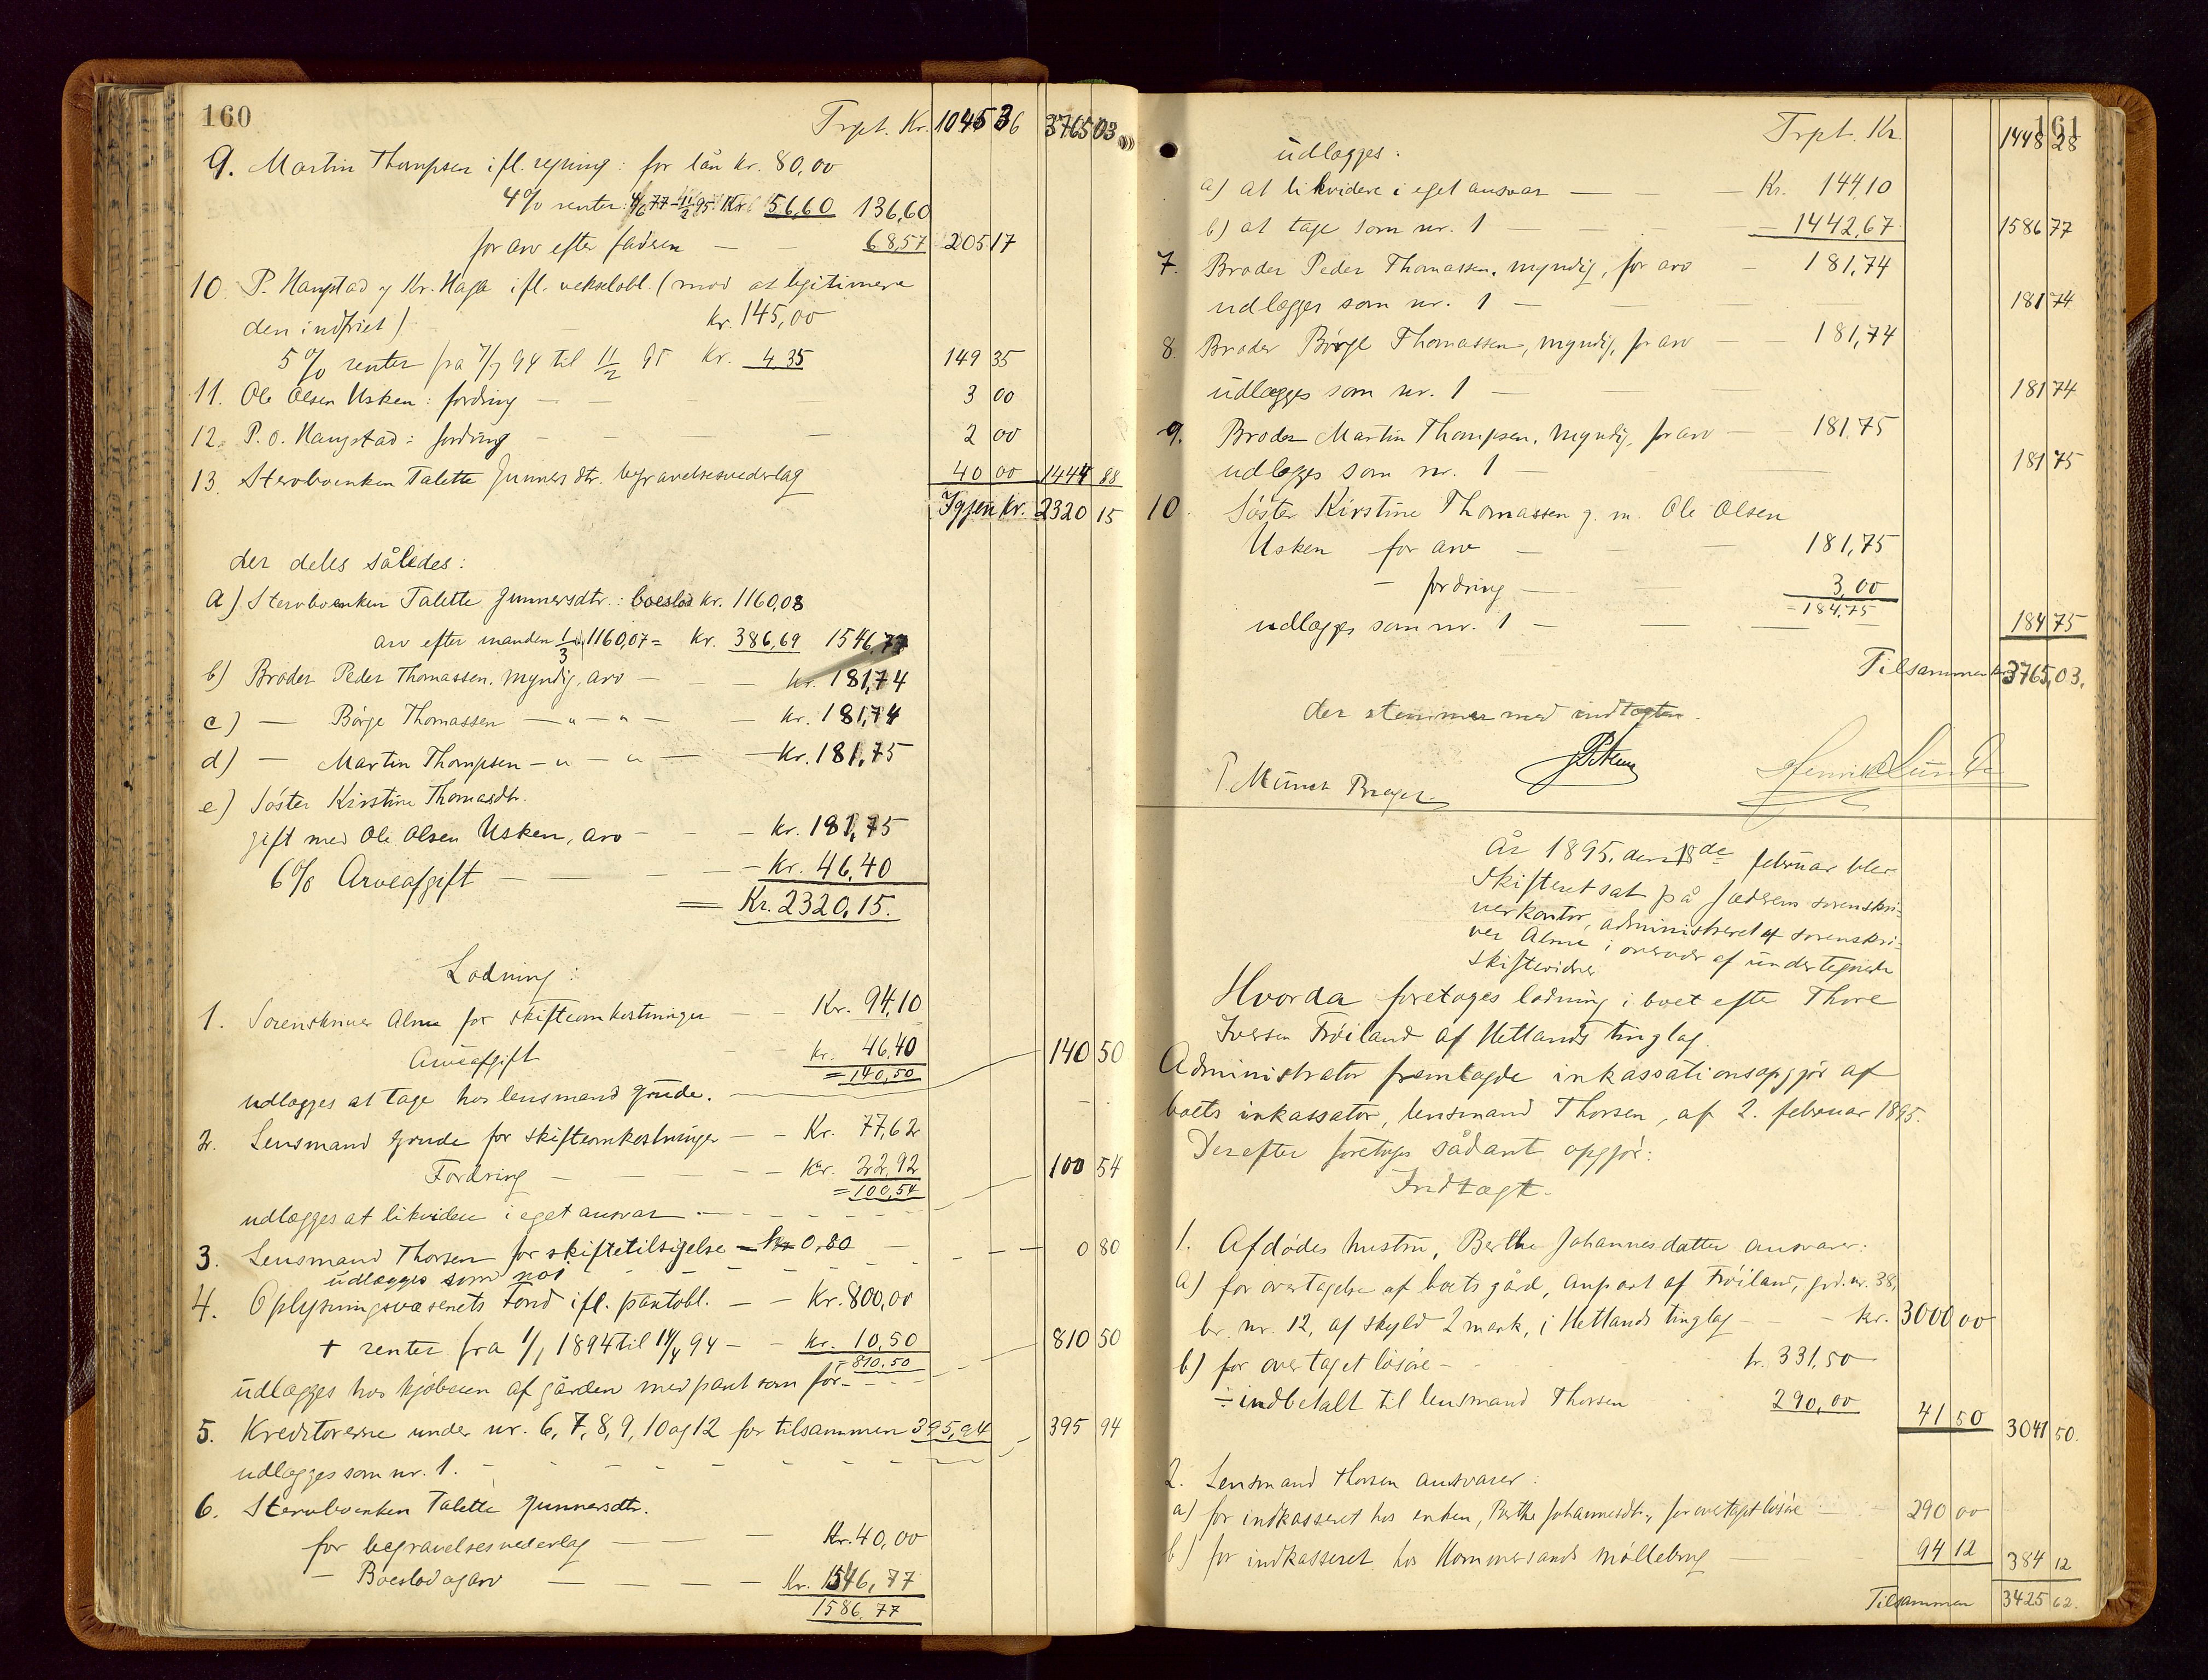 160
Trpt. Kr. 1045 36 3765 03
9. Martin Thompsen ifl. regning: for lån kr. 80,00
4% renter 4/6 77 - 11/2 95 Kr. 56,60 136,60
for arv efter faderen — — 68,57 205 17
10. P. Haugstad og Kr. Haga ifl. vekselobl. (mod at legitimere
den indfriet) — Kr. 145,00
5% renter fra 7/7 94 til 11/2 95 Kr. 4,35 149 35
11. Ole Olsen Usken: fordring — — 3 00
12. P. O. Haugstad: fordring — — 2 00
13. Stervboenken Talette Gunnersdtr. begravelsesvederlag 40 00 1444 88
Igjen kr. 2320 15
der deles således:
a) Stervboenken Talette Gunnersdtr.: boeslod kr. 1160,08
arv efter manden 1/3 af 1160,07 = Kr. 386,69 1546,77
b) Broder Peder Thomassen, myndig, arv — — — kr. 181,74
c) — Börge Thomassen — " — " — — kr. 181,74
d) — Martin Thompsen — " — " — — Kr. 181,75
e) Söster Kirstine Thomasdtr.
gift med Ole Olsen Usken, arv — — — kr. 181,75
6% Arveafgift — — — — Kr. 46,40
= Kr. 2320,15.
Lodning:
1. Sorenskriver Alme for skifteomkostninger — — Kr. 94,10
Arveafgift — — kr. 46,40 140 50
= 140,50
udlægges at tage hos lensmand Grude.
2. Lensmand Grude for skifteomkostninger — — Kr. 77,62
Fordring — — — — Kr. 22,92 100 54
= 100,54
udlægges at likvidere i eget ansvar — — —
3. Lensmand Thorsen for skiftetilsigelse — Kr 0,80 — — — 0 80
udlægges som no 1
4. Oplysningsvæsenets Fond ifl. pantobl. — — Kr. 800,00
+ renter fra 1/1 1894 til 14/4 94 — — Kr. 10,50 810 50
= 810,50
udlægges hos kjöberen af gården med pant som för — — —
5. Kreditorerne under nr. 6, 7, 8, 9, 10 og 12 for tilsammen 395,94 — 395 94
udlægges som nr. 1. — — — — — —
6. Stervboenken Talette Gunnersdtr.
for begravelsesvederlag — — — Kr. 40,00
— Boeslod og arv — — — — Kr. 1546,77
1586,77
161
Trpt. Kr. 1448 28
udlægges:
a) at likvidere i eget ansvar — — — Kr. 144,10
b) at tage som nr. 1 — — — — — 1442,67 1586 77
7. Broder Peder Thomassen, myndig, for arv — 181,74
udlægges som nr. 1 — — 181 74
8. Broder Börge Thomassen, myndig, for arv — 181,74
udlægges som nr. 1 — — 181 74
9. Broder Martin Thompsen, myndig, for arv — 181,75
udlægges som nr. 1 — — 181 75
10. Söster Kirstine Thomassen g. m. Ole Olsen
Usken for arv — — — 181,75
— fordring — — 3,00
= 184,75
udlægges som nr. 1 — — — 184 75
Tilsammen kr. 3765,03.
der stemmer med indtægten.
P. Münch
År 1895, den 18de februar blev
skifteret sat på Jæderens sorenskri-
verkontor, administreret af sorenskri-
ver Alme i overvær af undertegnede
skiftevidner
Hvorda foretoges lodning i boet efter Thore
Iversen Fröiland af Hetlands tinglag.
Administrator fremlagde inkassationsopgjör af
boets inkassator, lensmand Thorsen, af 2. februar 1895.
Derefter foretoges sådant opgjör:
Indtægt.
1. Afdödes hustru, Berthe Johannesdatter ansvarer:
a) for overtagelse af boets gård, anpart af Fröiland, grd. nr. 38,
br. nr. 12, af skyld 2 mark, i Hetlands tinglag — — — kr. 3000 00
b) for overtaget lösöre — kr. 331,50
÷ indbetalt til lensmand Thorsen 290,00 41 50 3041 50.
2. Lensmand Thorsen ansvarer:
a) for indkasseret hos enken, Berthe Johannesdtr., for overtaget lösöre — 290 00
b) for indkasseret hos Hommersands möllebrug 94 12 384 12
Tilsammen 3425 62.